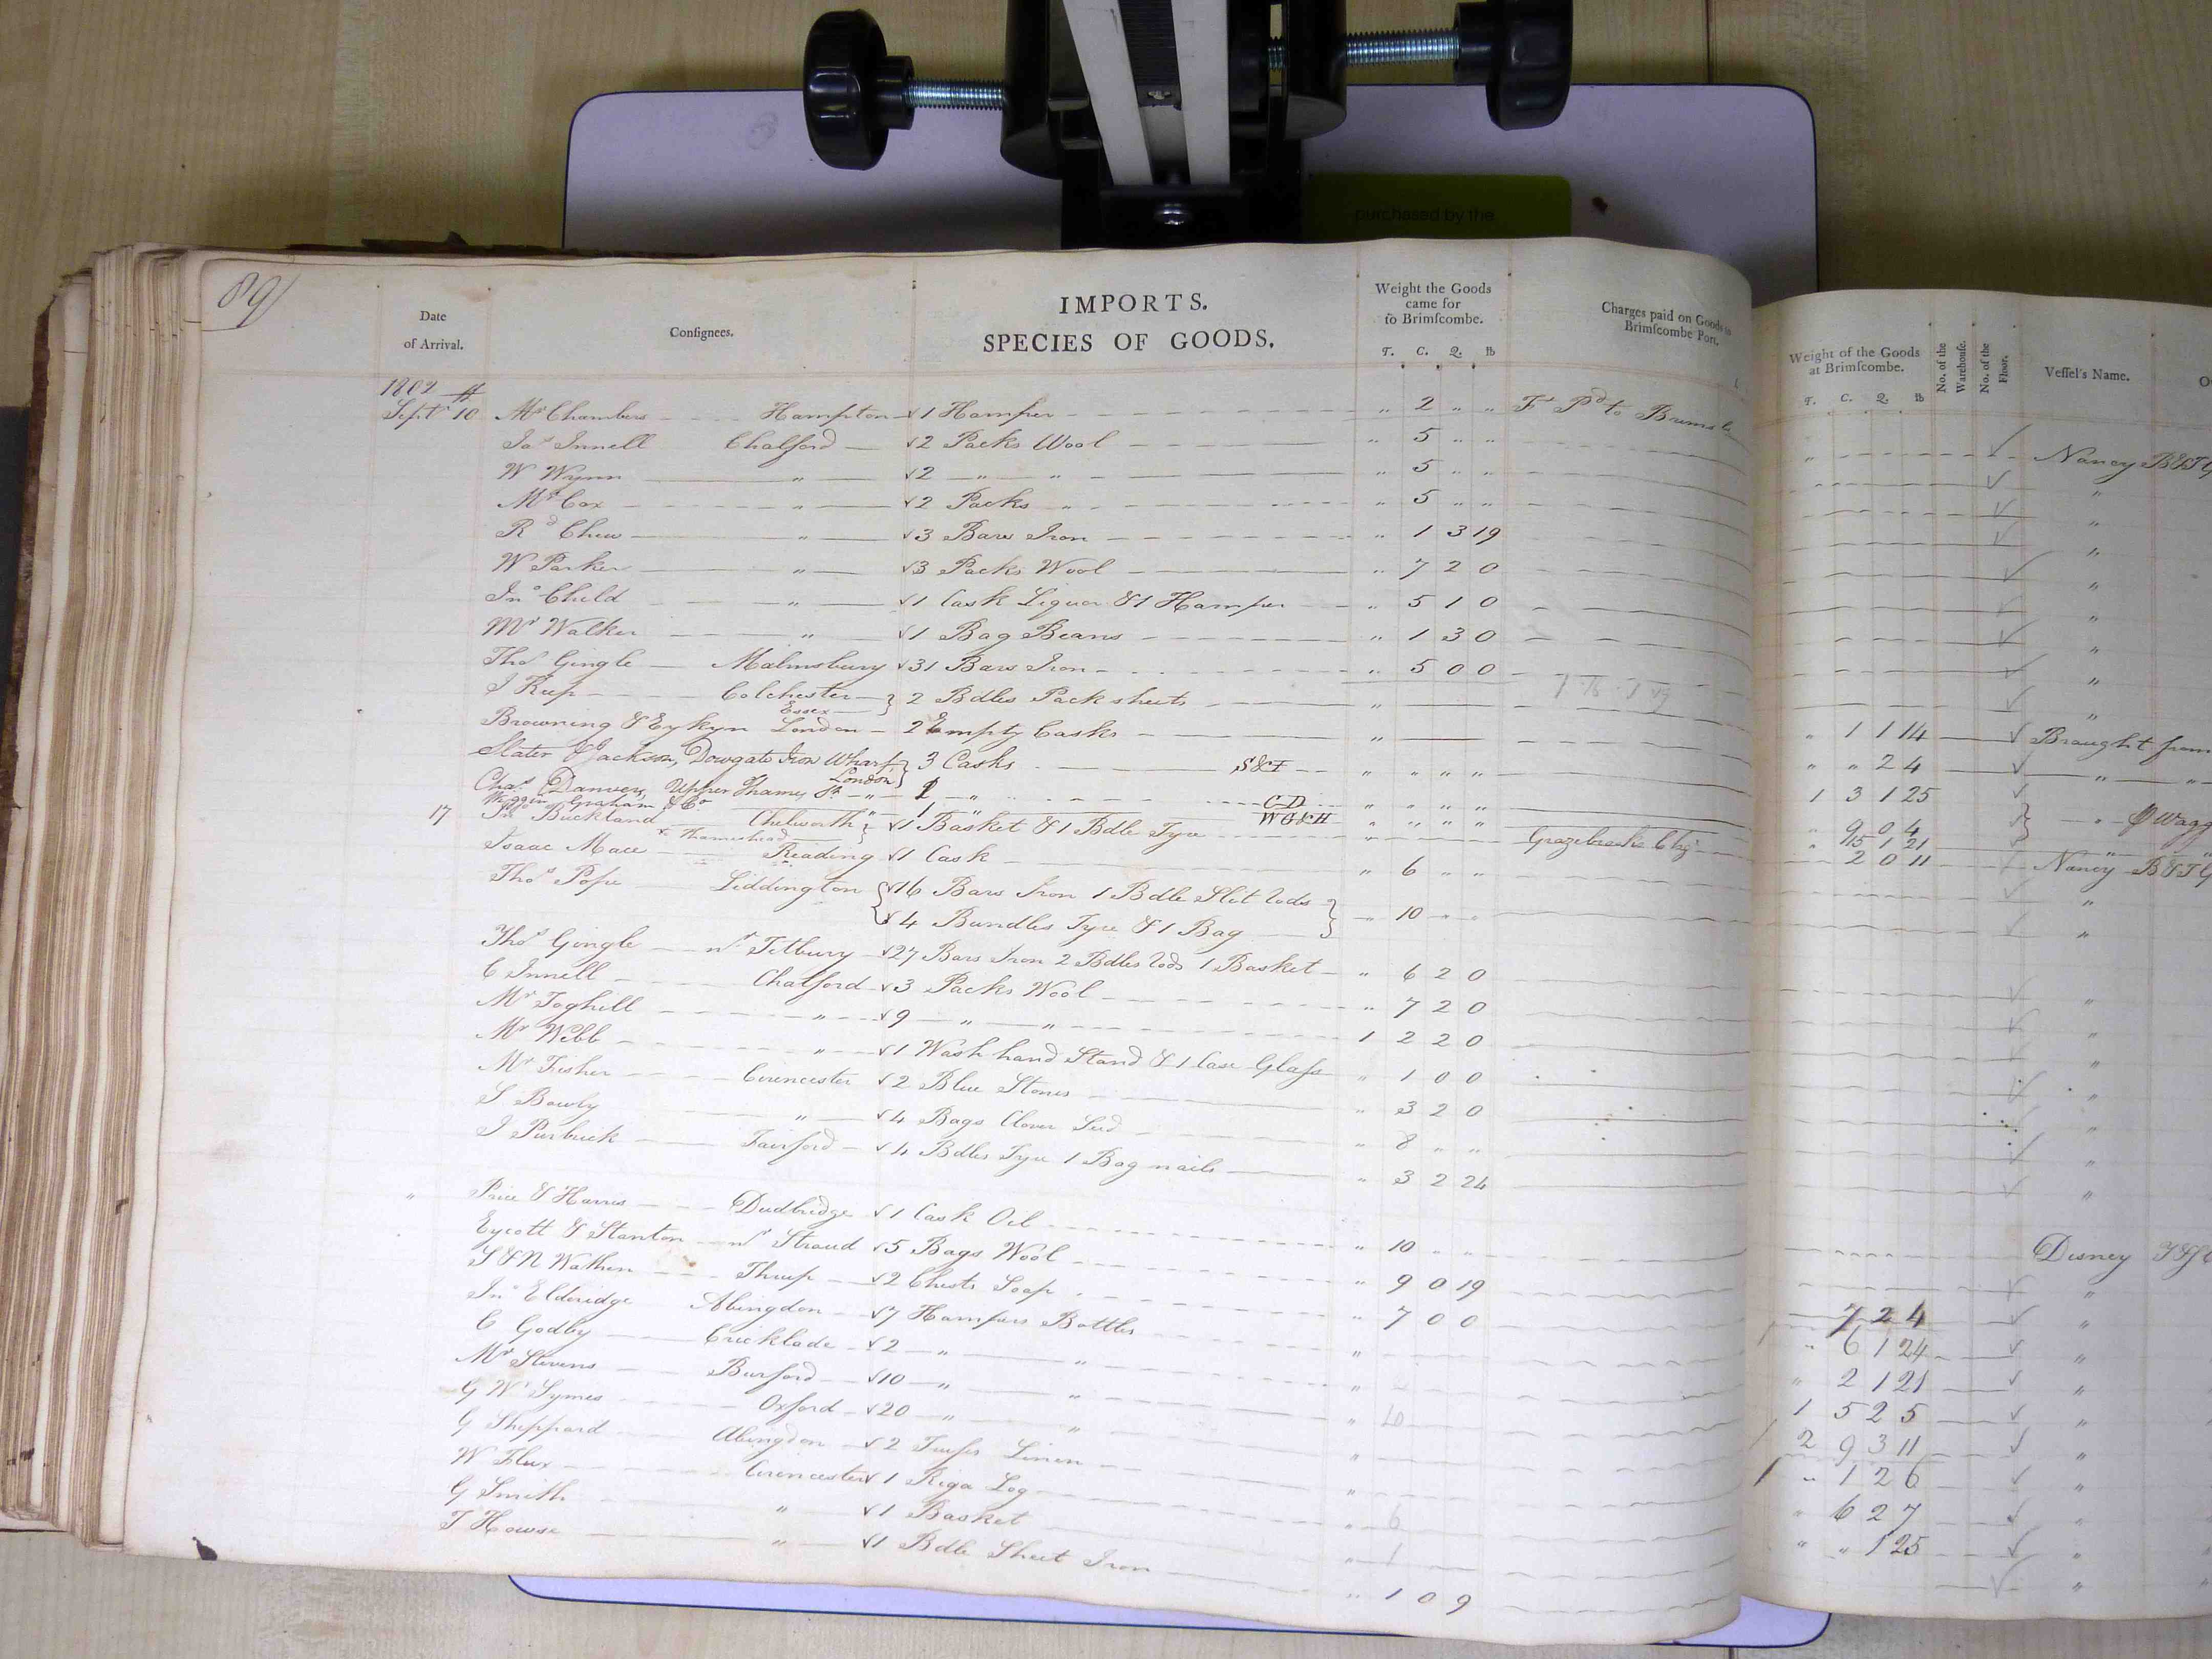 purchased by the
89
Date of Arrival. Consignees. IMPORTS. SPECIES OF GOODS. Weight the Goods came for to Brimſcombe. T. C. Q. lb Charges paid on Goods to Brimſcombe Port. Weight of the Goods at Brimſcombe. T. C. Q. lb No. of the Warehouſe. No. of the Floor. Veſſel's Name.
1802
Sept 10 Mr Chambers Hampton 1 Hamper " 2 " " Nancy
Jas Innell Chalford 2 Packs Wool " 5 " " "
W Wynn " 2 " " " 5 " " "
Mr Cox " 2 Packs " " 5 " " "
Rd Chew " 3 Bars Iron " 1 3 19 "
W Parker " 3 Packs Wool " 7 2 0 "
Jno Child " 1 Cask Liquor & 1 Hamper " 5 1 0 "
Mr Walker " 1 Bag Beans " 1 3 0 "
Thos Gingle Malmsbury 31 Bars Iron " 5 0 0 "
Colchester Essex } 2 Bdles Pack sheets " " 1 1 14 Brought from
Browning & Eykyn London 2 Empty Casks " " " 2 4 " "
Slater & Jackson, Dowgate Iron Wharf London } 3 Casks S&I " " " " 1 3 1 25
Chas Danvers Upper Thames St " " C D " " " " " 9 0 4 } " Wagg
Wiggin Graham & Co " 1 " W G & H " " " " " 15 1 21 "
17 Jno Buckland Chelworth 1 Basket & 1 Bdle Tyre " Grazebrooks Chg " 2 0 11 Nancy
Isaac Mace Thameshead Reading 1 Cask " 6 " " "
Thos Pope Liddington { 16 Bars Iron 1 Bdle Slit rods } " 10 " " "
4 Bundles Tyre & 1 Bag
Thos Gingle nr Tetbury 27 Bars Iron 2 Bdles rods 1 Basket " 6 2 0 "
C Innell Chalford 3 Packs Wool " 7 2 0 "
Mr Toghill " 9 " " 1 2 2 0 "
Mr Webb " 1 Wash hand Stand & 1 Case Glaſs " 1 0 0 "
Mr Fisher Cirencester 2 Blue Stones " 3 2 0 "
S Bowly " 4 Bags Clover Seed " 8 " " "
J Purbrick Fairford 4 Bdles Tyre 1 Bag nails " 3 2 24 "
" Price & Harris Dudbridge 1 Cask Oil " 10 " " Disney
Eycott & Stanton nr Stroud 5 Bags Wool " 9 0 19 "
S & N Wathen Thrup 2 Chests Soap " 7 0 0 7 2 4 "
Jno Elderidge Abingdon 7 Hampers Bottles " " 6 1 24 "
C Godby Cricklade 2 " " " " 2 1 21 "
Mr Stevens Burford 10 " " " 10 1 5 2 5 "
G W Symes Oxford 20 " " " 2 9 3 11 "
G Sheppard Abingdon 2 Truſses Linen " " 1 2 6 "
W Flux Cirencester 1 Riga Log " 6 " 6 2 7 "
G Smith " 1 Basket " 1 " " 1 25 "
T Howse " 1 Bdle Sheet Iron " 1 0 9 "